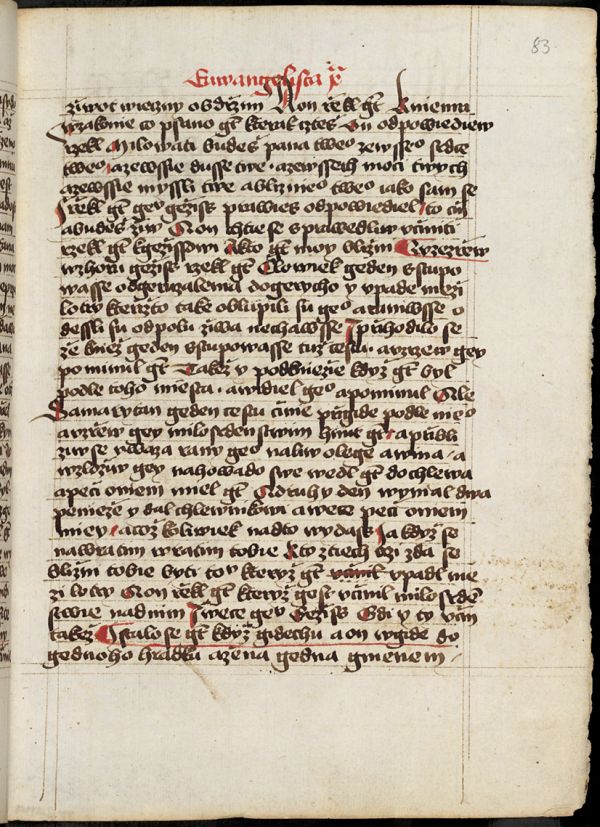 83
Euwangelista x
ziwot wieczny obdrzim A on řekl gt K niemu
w zakonie co psano gt kterak cztes On odpowiediew
řekl Milowati budes pana tweo zewsseo srdce
tweo a zewssie dusse twe · a zewssech moci twych
a zewssie myssli twe a blizneo tweo iako sam se
I řekl gt gey geziss prawies odpowiediel · to cin
a budes ziw A on chtie se sprawedliw vciniti
řekl gt k gezissowi A kto gt moy blizni Wzezřew
wzhoru geziss řekl gt Clowiek geden sstupo
wasse od geruzalema do gerycho y vpade mezi
lotry kterzito take oblupili su geo a raniwsse o
dessli su odpolu ziwa nechawsse I przihodilo se
ze kniez geden sstupowasse tuz cestu · a vzrzew gey
pomunil gt Takez y podkniezie kdyz gt byl
podle toho miesta · a widiel geo a pominul Ale
Samarytan geden cestu cinie przigide podle neo
a vzřew gey milosrdenstwim hnut gt · a przibli
ziw se vwaza rany geo naliw olege a wina · a
wzloziw gey na howado swe wedl gt do chlewa
a peci o niem miel gt A druhy den wynial dwa
penieze y dal chlewnikowi a wece peci o niem
miey · a coz koliwiek nadto wydass Ia kdyz se
nawratim wratim tobie Kto z tiech trzi zda se
blizni tobie byti toy kteryz gt vcinil vpadl me
zi lotry A on řekl gt kteryz gest vcinil milosrden
stwie nad nim I wece gey Geziss Gdi y ty vcin
takez I stalo se gt kdyz gidechu a on wgide do
gednoho hradku a zena gedna gmenem